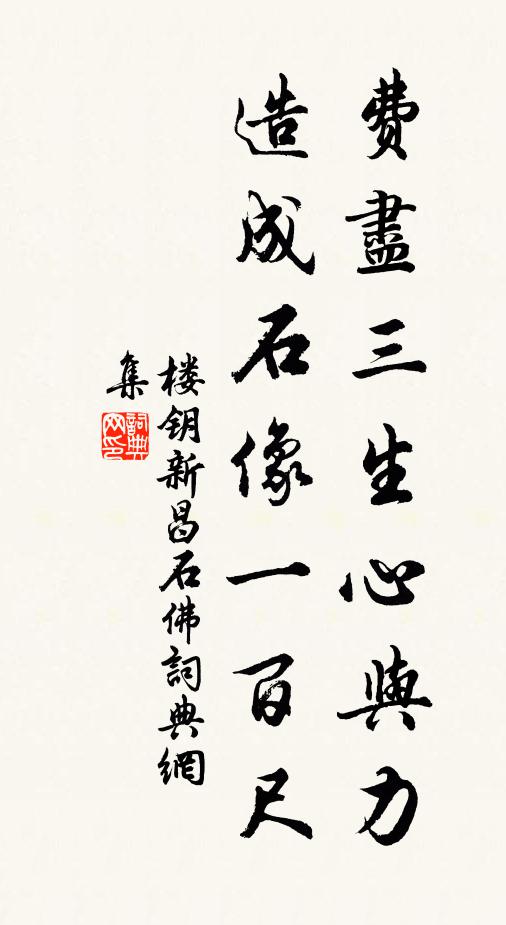 費盡三生心與力
造成石像一百尺
楼钥新昌石佛詞典網
集
詞典網印